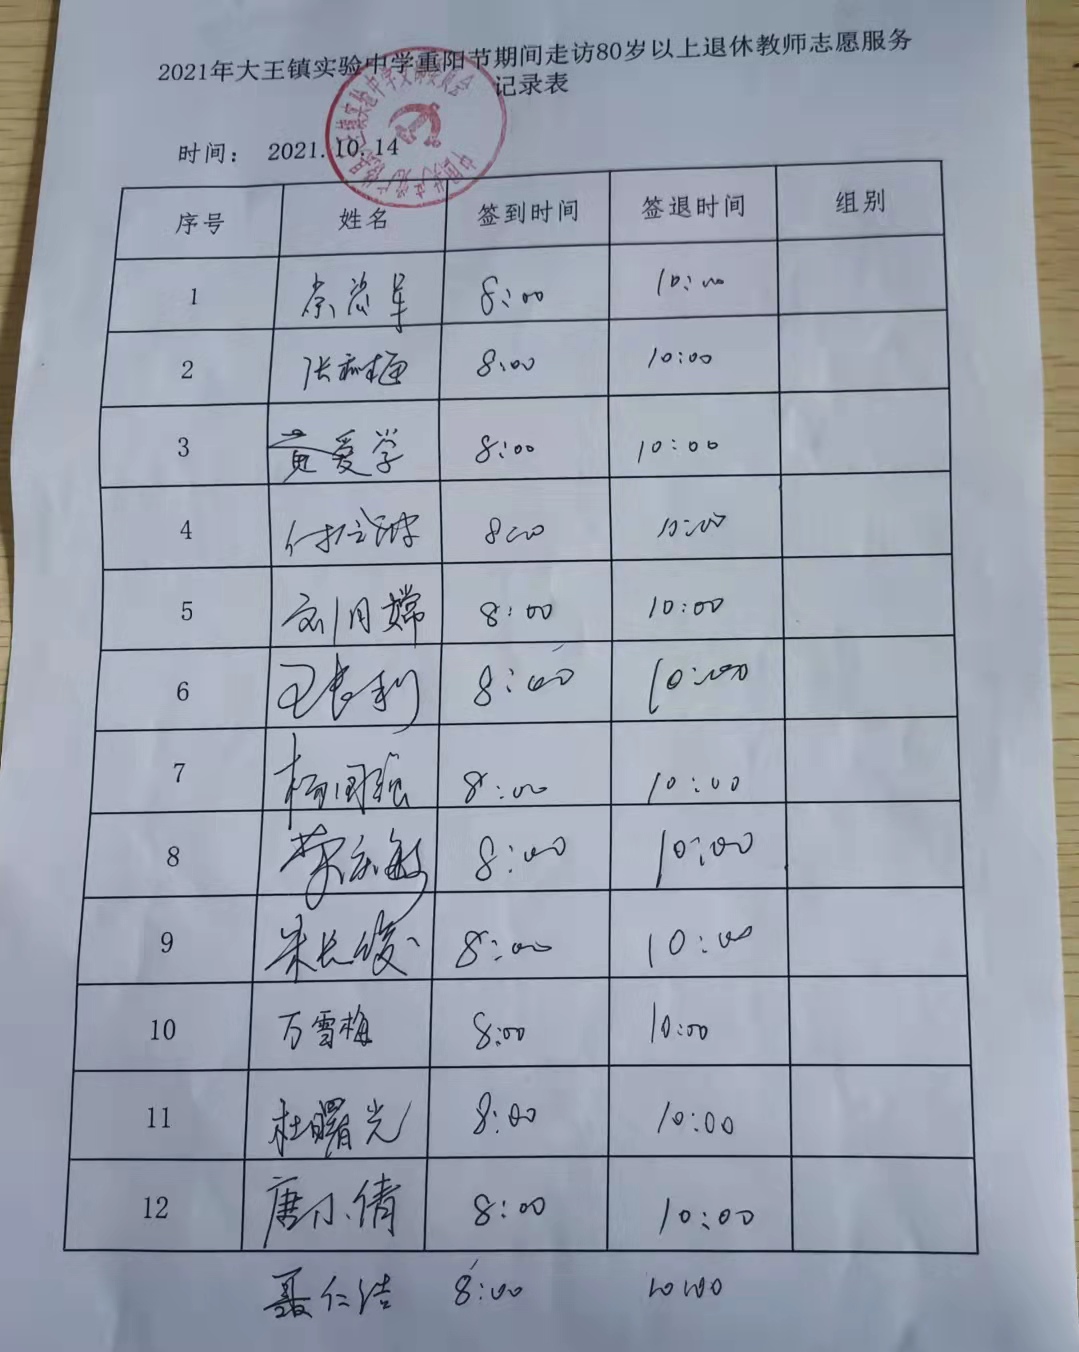 2021年大王镇实验中学重阳节期间走访80岁以上退休教师志愿服务
记录表
时间： 2021.10.14
序号 姓名 签到时间 签退时间 组别
1 8:00 10:00
2 张 梅 8:00 10:00
3 黄爱学 8:00 10:00
4 付 8:00 10:00
5 刘月嫦 8:00 10:00
6 王长利 8:00 10:00
7 杨国强 8:00 10:00
8 敏 8:00 10:00
9 长俊 8:00 10:00
10 万雪梅 8:00 10:00
11 杜曙光 8:00 10:00
12 唐小倩 8:00 10:00
聂仁浩 8:00 10:00